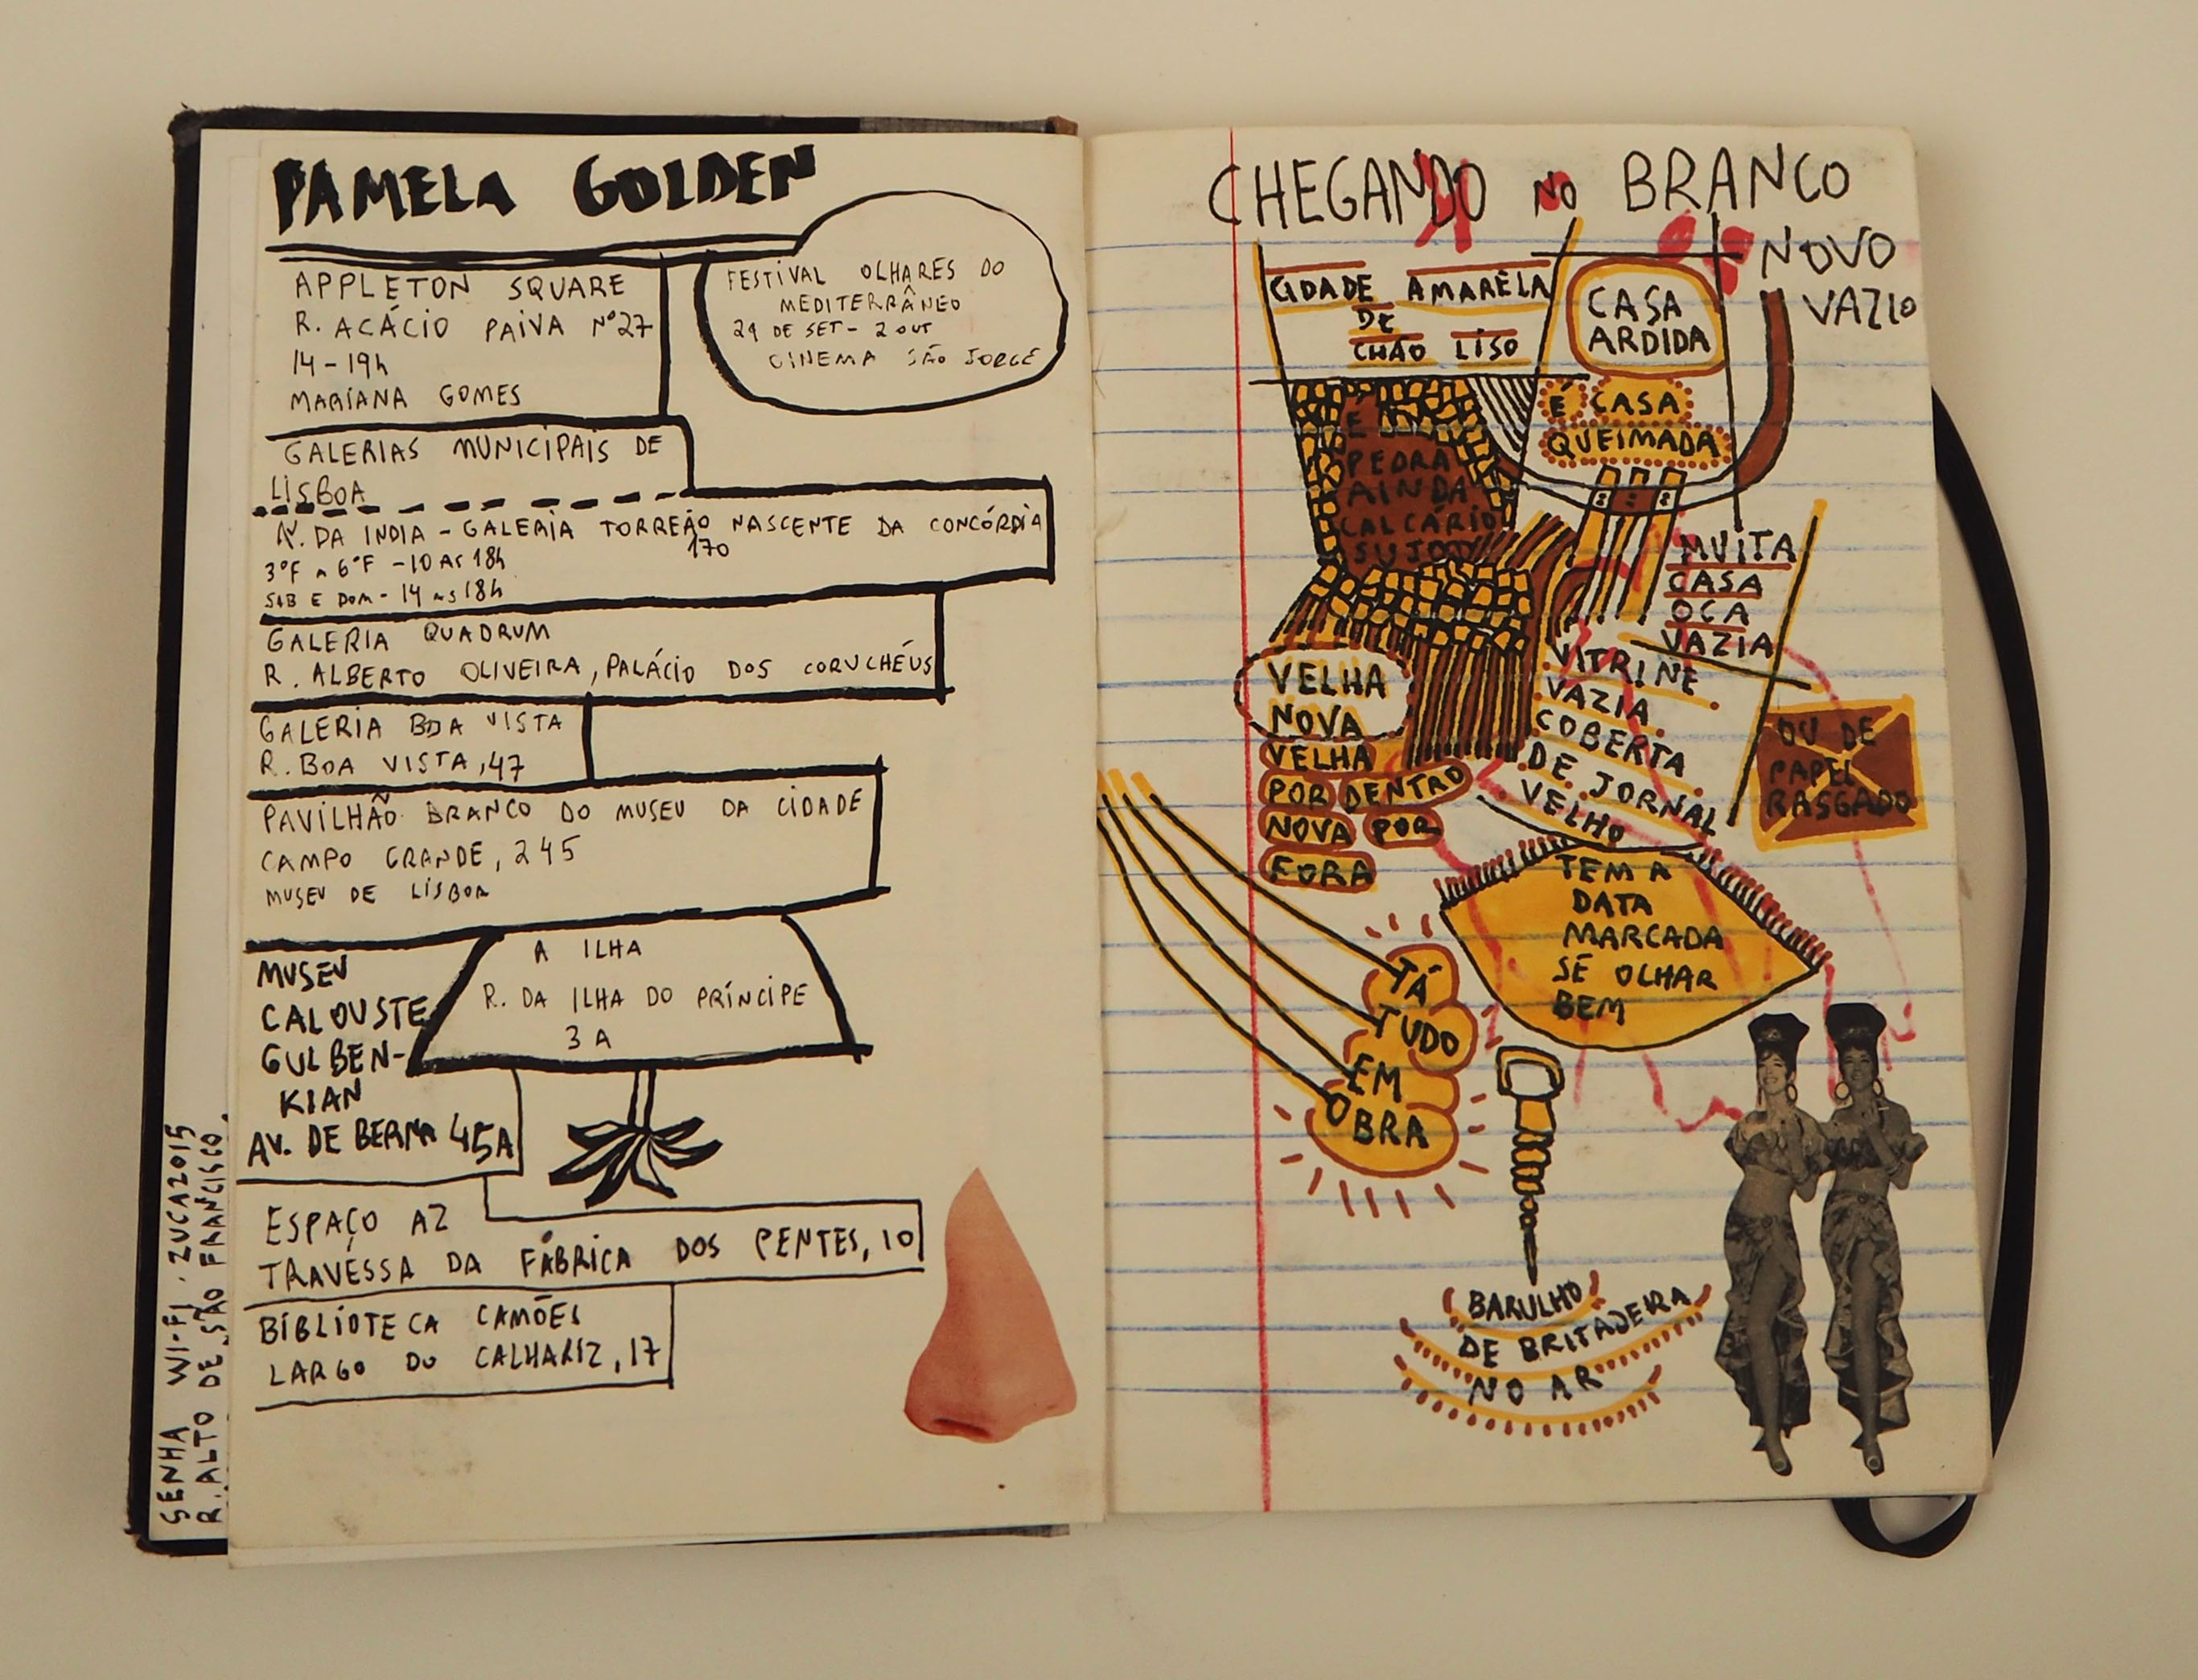 PAMELA GOLDEN
APPLETON SQUARE
R. ACÁCIO PAIVA Nº27
14-19h
MARIANA GOMES
FESTIVAL OLHARES DO
MEDITERRÂNEO
29 DE SET - 2 OUT
CINEMA SÃO JORGE
GALERIAS MUNICIPAIS DE
LISBOA
AV. DA INDIA - GALERIA TORREÃO NASCENTE DA CONCÓRDIA
170
3ºF A 6ºF - 10 AS 18h
SAB E DOM - 14 AS 18h
GALERIA QUADRUM
R. ALBERTO OLIVEIRA, PALÁCIO DOS CORUCHÉUS
GALERIA BOA VISTA
R. BOA VISTA, 47
PAVILHÃO BRANCO DO MUSEU DA CIDADE
CAMPO GRANDE, 245
MUSEU DE LISBOA
A ILHA
R. DA ILHA DO PRÍNCIPE
3A
MUSEU
CALOUSTE
GULBEN-
KIAN
AV. DE BERNA 45A
ESPAÇO AZ
TRAVESSA DA FÁBRICA DOS PENTES, 10
BIBLIOTECA CAMÕES
LARGO DO CALHARIZ, 17
SENHA WI-FI. ZUCA2015
R. ALTO DE SÃO FRANCISCO.
CHEGANDO NO BRANCO
NOVO
VAZIO
CIDADE AMARELA
DE
CHÃO LISO
CASA
ARDIDA
É CASA
QUEIMADA
E
PEDRA
AINDA
CALCÁRIO
SUJO
MUITA
CASA
OCA
VAZIA
VITRINE
VAZIA
COBERTA
DE JORNAL
VELHO
OU DE
PAPEL
RASGADO
VELHA
NOVA
VELHA
POR DENTRO
NOVA POR
FORA
TEM A
DATA
MARCADA
SE OLHAR
BEM
TÁ
TUDO
EM
OBRA
BARULHO
DE BRITADEIRA
NO AR